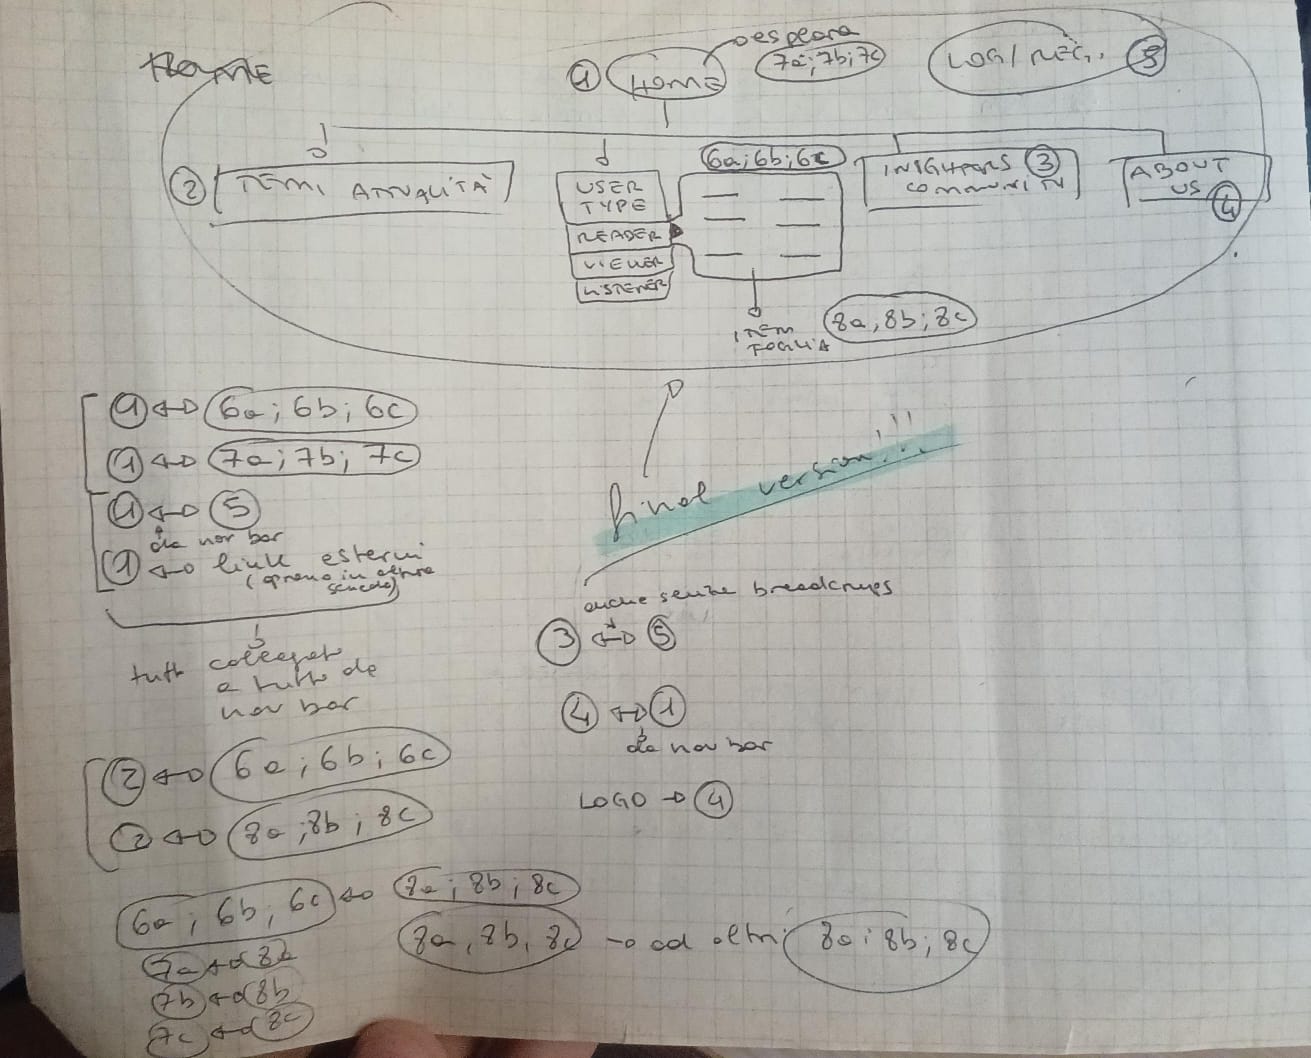 HOME
1 HOME
esplora
7a; 7b; 7c
LOG/REG. 5
2 TEMI ATTUALITÀ
USER
TYPE
READER
VIEWER
LISTENER
6a; 6b; 6c
INSIGHTERS 3
COMMUNITY
ABOUT
US 4
ITEM
FOGLIA
8a, 8b; 8c
1 ↔ 6a; 6b; 6c
1 ↔ 7a; 7b; 7c
1 ↔ 5
da nav bar
1 ↔ link esterni
(aprono in altra
scheda)
tutti collegati
a tutto da
nav bar
final version!!!
anche senza
3 ↔ 5
4 ↔ 1
da nav bar
LOGO → 4
2 ↔ 6a; 6b; 6c
2 ↔ 8a; 8b; 8c
6a; 6b; 6c ↔ 8a; 8b; 8c
7a ↔ 8a
7b ↔ 8b
7c ↔ 8c
8a, 8b, 8c → ad altri 8a; 8b; 8c